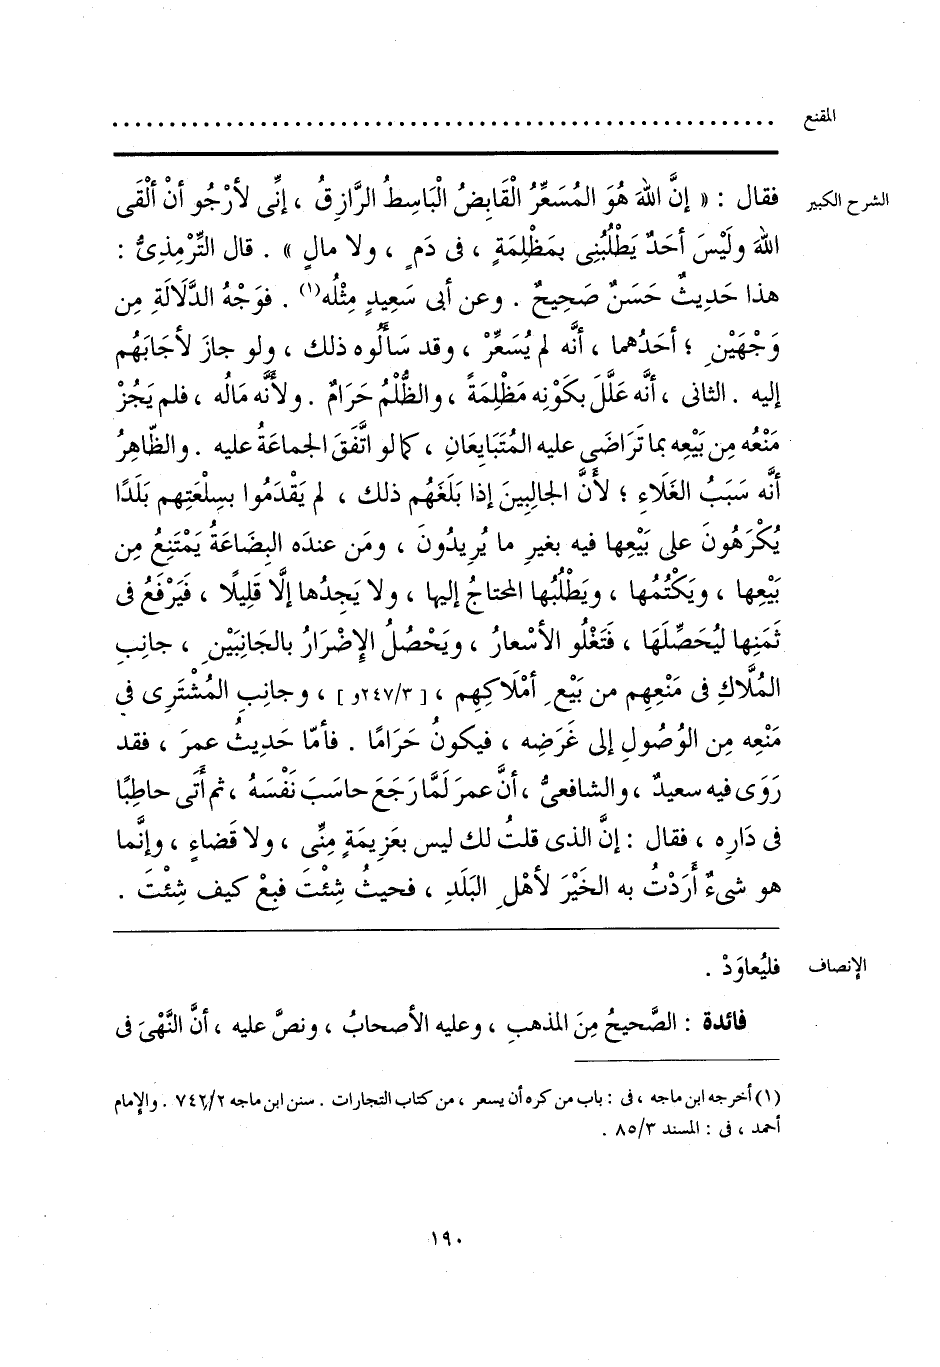 المقنع ......................................................
الشرح الكبير فقال : « إنَّ اللهَ هُوَ المُسَعِّرُ الْقَابِضُ الْبَاسِطُ الرَّازِقُ ، إنِّى لأرْجُو أنْ ألْقَى
اللهَ ولَيْسَ أحَدٌ يَطْلُبُنِى بمَظْلِمَةٍ ، فى دَمٍ ، ولا مالٍ » . قال التِّرْمِذِىُّ :
هذا حَدِيثٌ حَسَنٌ صَحِيحٌ . وعن أبى سَعِيدٍ مِثْلُه(١) . فوَجْهُ الدَّلَالَةِ مِن
وَجْهَيْنِ ؛ أحَدُهما ، أنَّه لم يُسَعِّرْ ، وقد سَألُوه ذلك ، ولو جازَ لأجابَهُم
إليه . الثانى ، أنَّه عَلَّلَ بكَوْنِه مَظْلِمَةً ، والظُّلْمُ حَرَامٌ . ولأنَّه مَالُه ، فلم يَجُزْ
مَنْعُه مِن بَيْعِه بما تَرَاضَى عليه المُتَبَايِعَانِ ، كما لو اتَّفَقَ الجماعَةُ عليه . والظّاهِرُ
أنَّه سَبَبُ الغَلَاءِ ؛ لأنَّ الجالِبِينَ إذا بَلَغَهُم ذلك ، لم يَقْدَمُوا بسِلْعَتِهم بَلَدًا
يُكْرَهُونَ على بَيْعِها فيه بغيرِ ما يُرِيدُونَ ، ومَن عندَه البِضَاعَةُ يَمْتَنِعُ مِن
بَيْعِها ، ويَكْتُمُها ، ويَطْلُبُها المحتاجُ إليها ، ولا يَجِدُها إلَّا قَلِيلًا ، فَيَرْفَعُ فى
ثَمَنِها ليُحَصِّلَهَا ، فَتَغْلُو الأسْعارُ ، ويَحْصُلُ الإِضْرَارُ بالجَانِبَيْنِ ، جانِبِ
المُلَّاكِ فى مَنْعِهِم من بَيْعِ أمْلَاكِهِم ، [ ٢٤٧/٣و ] ، وجانِبِ المُشْتَرِى فى
مَنْعِه مِن الوُصُولِ إلى غَرَضِه ، فيكونُ حَرَامًا . فأمّا حَدِيثُ عمرَ ، فقد
رَوَى فيه سعيدٌ ، والشافعىُّ ، أنَّ عمرَ لَمَّا رَجَعَ حاسَبَ نَفْسَهُ ، ثم أَتَى حاطِبًا
فى دَارِه ، فقال : إنَّ الذى قلتُ لك ليس بعَزِيمَةٍ مِنِّى ، ولا قَضاءٍ ، وإنَّما
هو شىءٌ أَرَدْتُ به الخَيْرَ لأهْلِ البَلَدِ ، فحيثُ شِئْتَ فبِعْ كيف شِئْتَ .
الإنصاف فليُعاوَدْ .
فائدة : الصَّحيحُ مِنَ المذهبِ ، وعليه الأصحابُ ، ونصَّ عليه ، أنَّ النَّهْىَ فى
(١) أخرجه ابن ماجه ، فى : باب من كره أن يسعر ، من كتاب التجارات . سنن ابن ماجه ٧٤٢/٢ . والإمام
أحمد ، فى : المسند ٨٥/٣ .
١٩٠